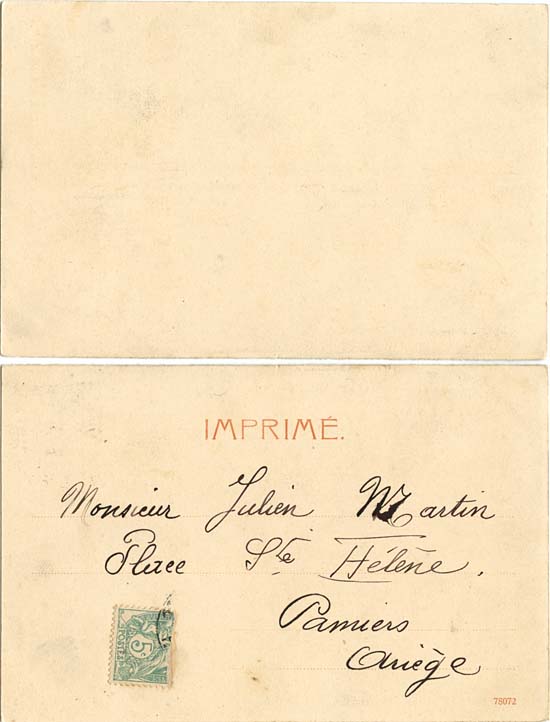 IMPRIMÉ.
Monsieur Julien Martin
Place Ste Hélène.
Pamiers
Ariège
5c
POSTES
78072